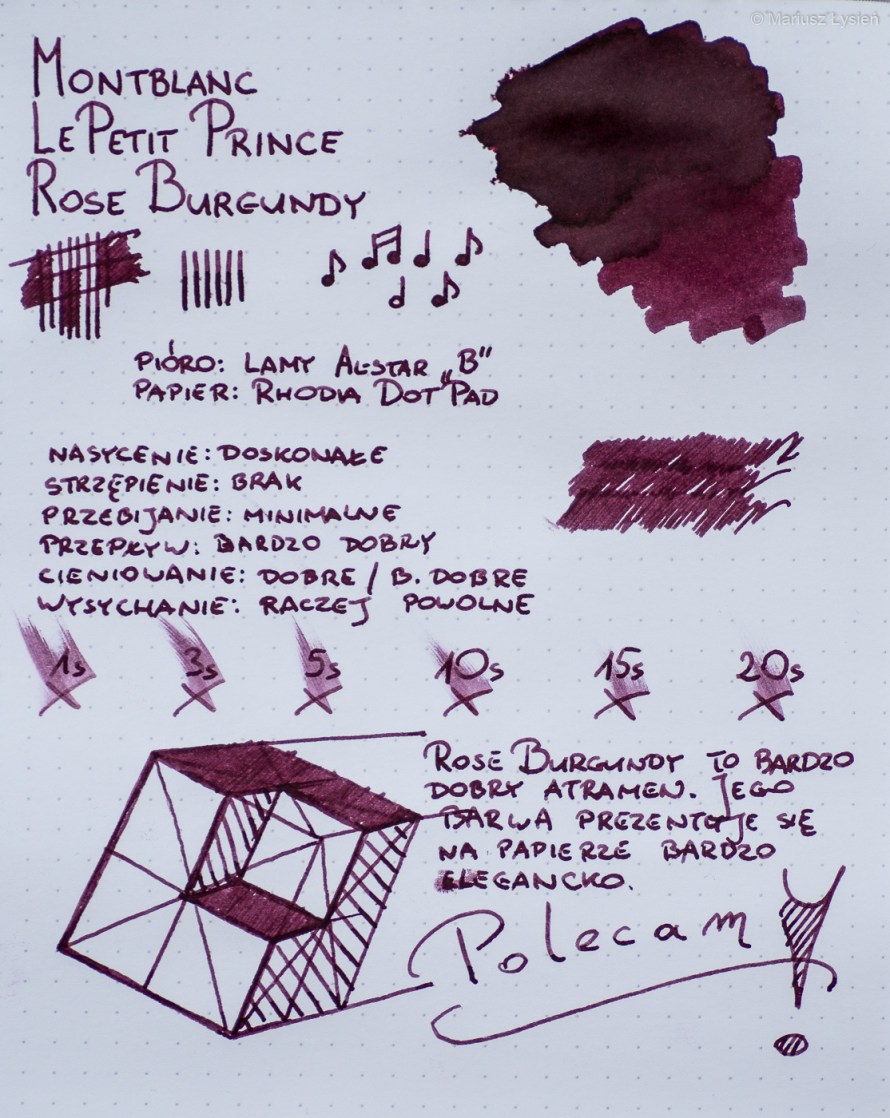 © Mariusz Łysień
MONTBLANC
LE PETIT PRINCE
ROSE BURGUNDY
PIÓRO: LAMY AL-STAR „B”
PAPIER: RHODIA DOT PAD
NASYCENIE: DOSKONAŁE
STRZĘPIENIE: BRAK
PRZEBIJANIE: MINIMALNE
PRZEPŁYW: BARDZO DOBRY
CIENIOWANIE: DOBRE / B. DOBRE
WYSYCHANIE: RACZEJ POWOLNE
1s 3s 5s 10s 15s 20s
ROSE BURGUNDY TO BARDZO
DOBRY ATRAMEN. JEGO
BARWA PREZENTUJE SIĘ
NA PAPIERZE BARDZO
ELEGANCKO.
Polecam!